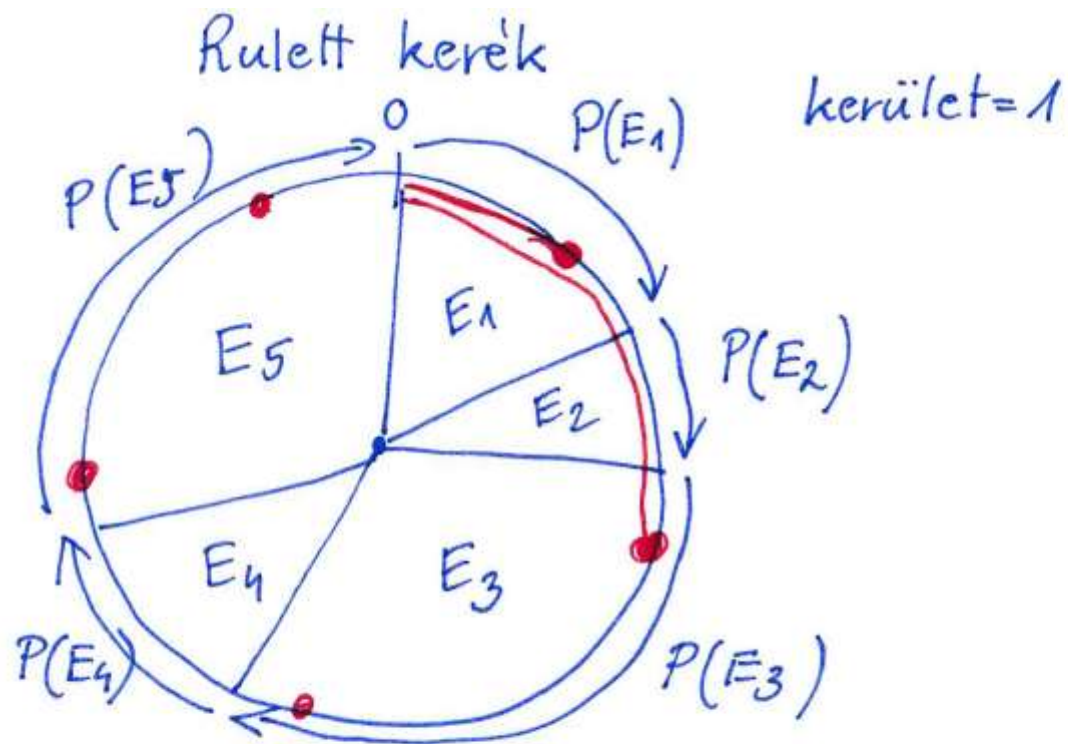 Rulett kerék
kerület=1
0
P(E1)
P(E5)
E1
E5
E2
P(E2)
E4
E3
P(E4)
P(E3)